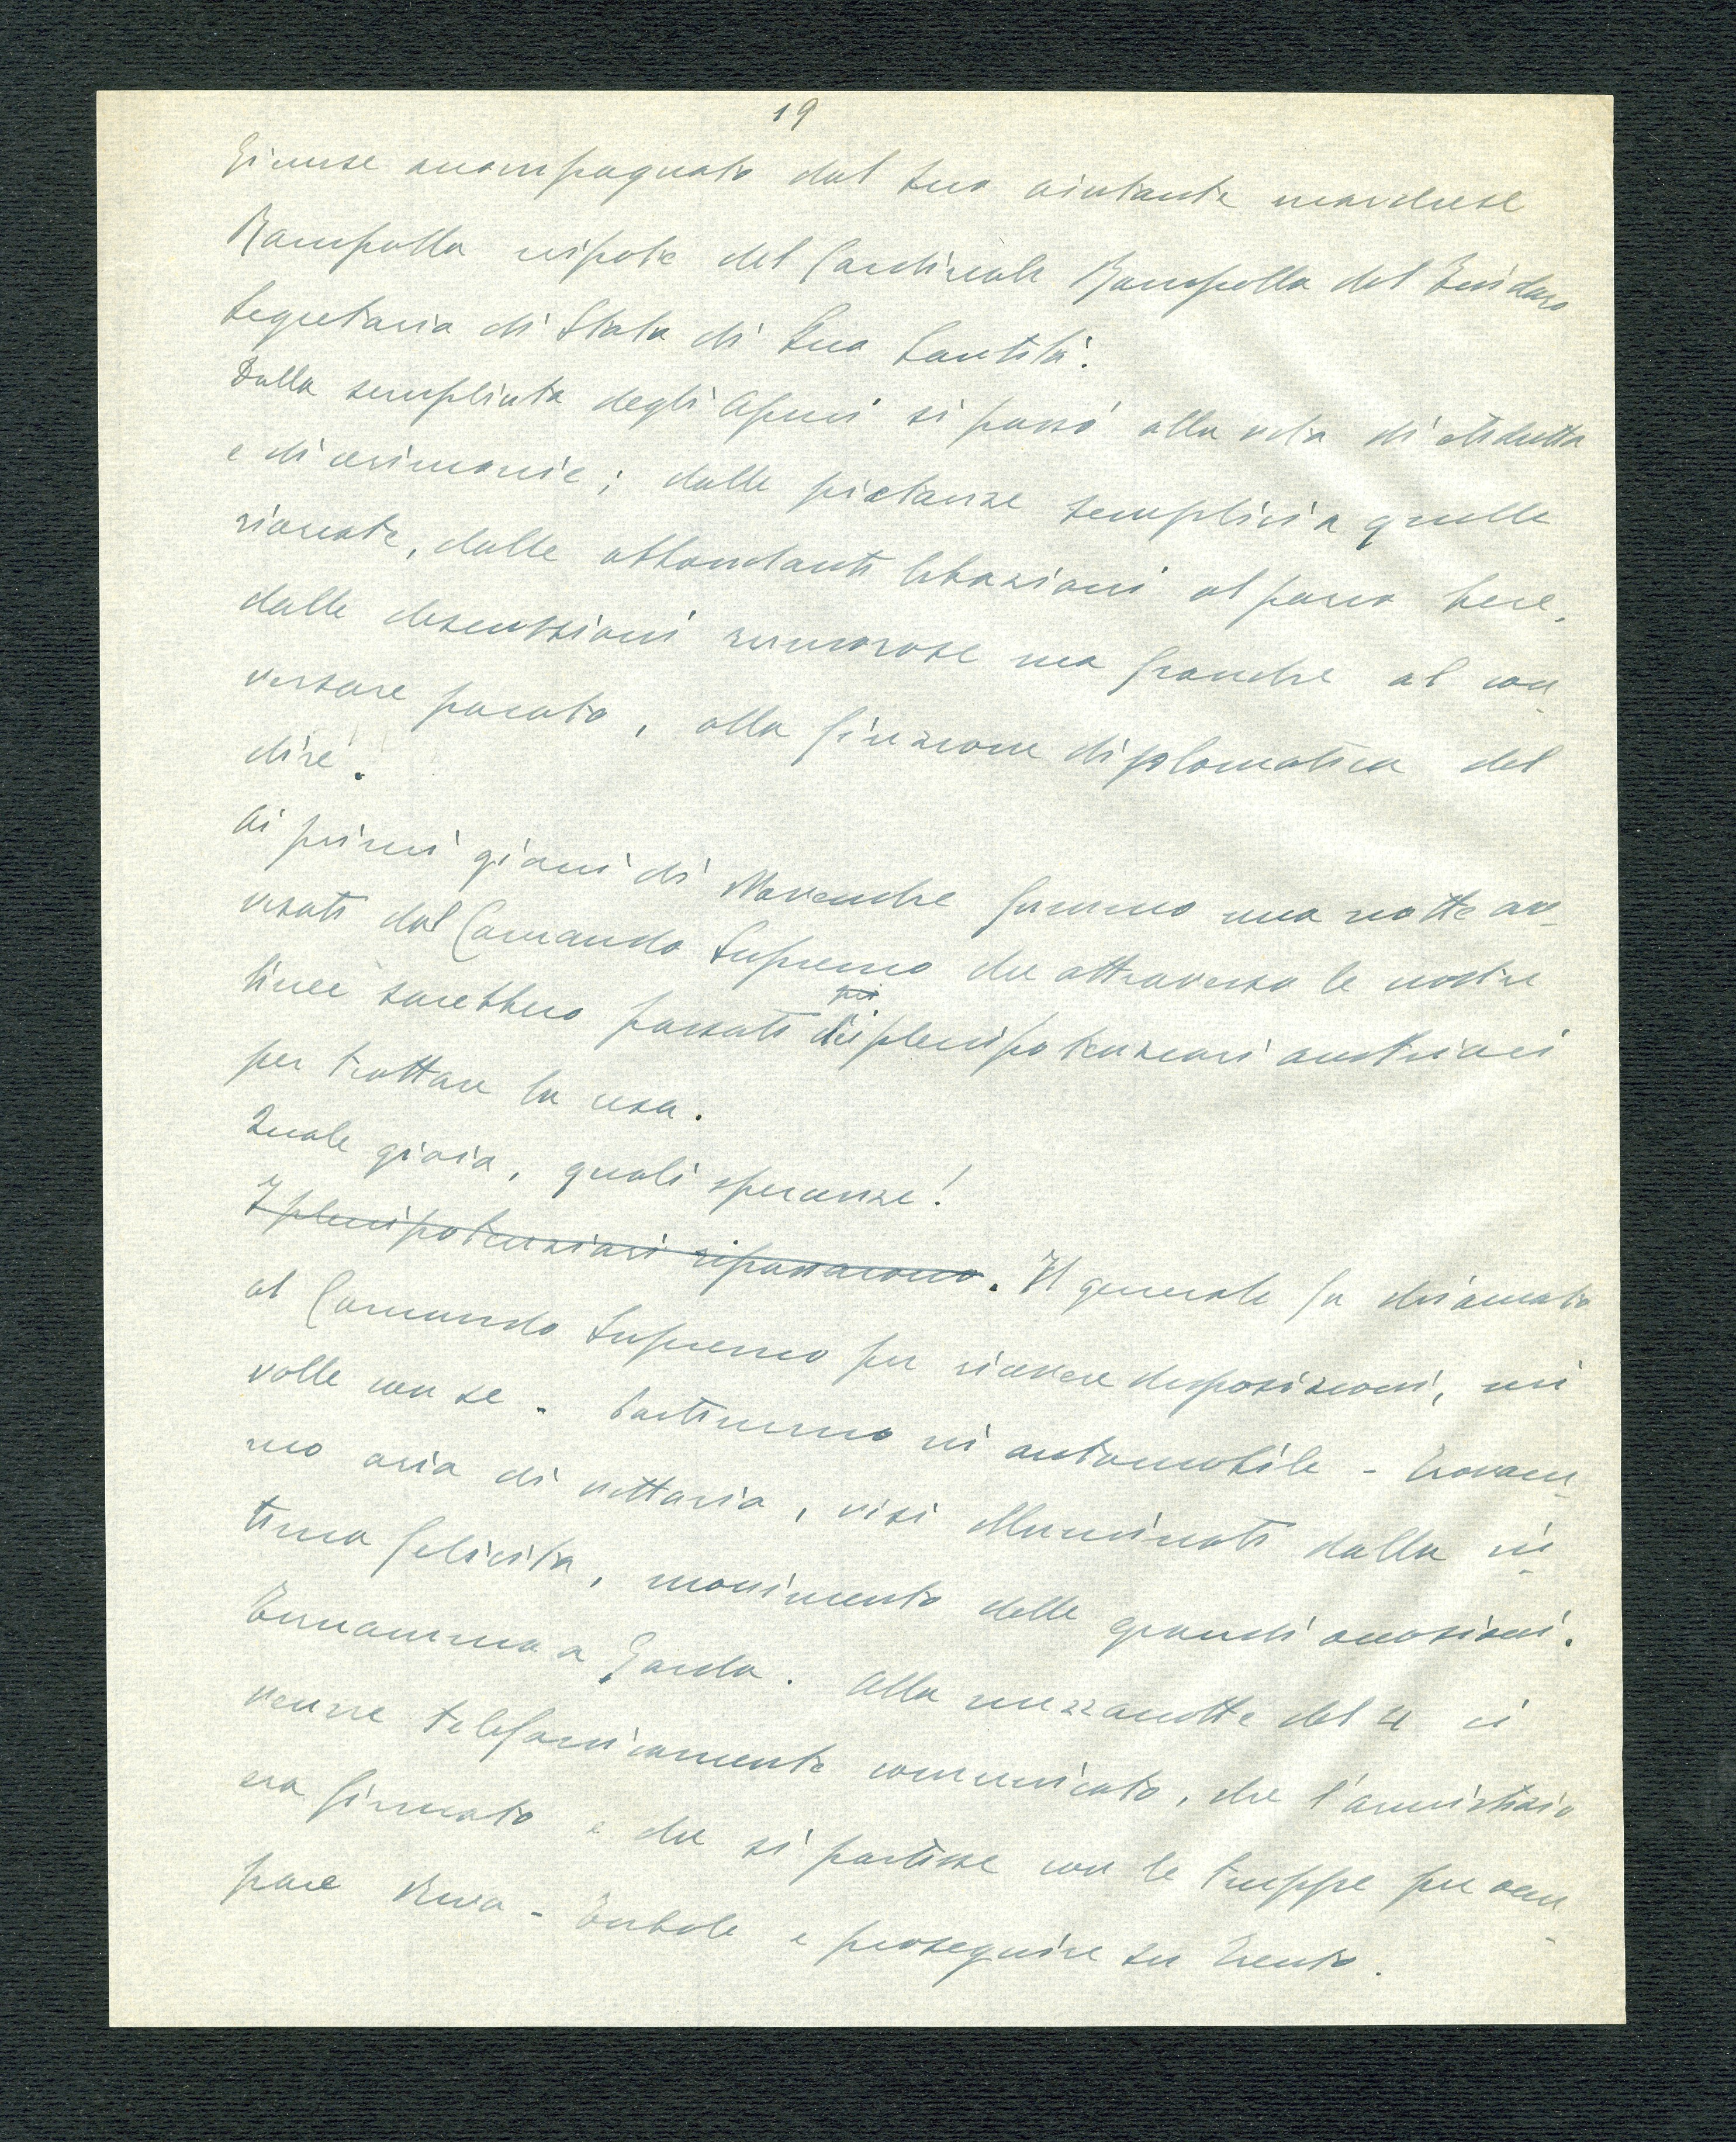 19
Giunse accompagnato dal suo aiutante marchese
Rampolla nipote del Cardinale Rampolla del Tindaro
Segretario di Stato di Sua Santità.
Dalla semplicità degli Alpini si passò alla vita di etichetta
e di cerimonie; dalle pietanze semplici a quelle
zionate, dalle abbondanti libazioni al parco bere,
dalle discussioni rumorose ma franche al con-
versare pacato, alla finzione diplomatica del
dire.
Ai primi giorni di Novembre fummo una notte av-
visati dal Comando Supremo che attraverso le nostre
linee sarebbero passati i plenipotenziari austriaci
per trattare la resa.
Quale gioia, quali speranze!
I plenipotenziari ripassarono. Il generale fu chiamato
al Comando Supremo per ricevere disposizioni, mi
volle con se - Partimmo in automobile - Trovam-
mo aria di vittoria, visi illuminati dalla in-
tima felicità, movimento delle grandi occasioni.
Tornammo a Garda. Alla mezzanotte del 4 ci
venne telefonicamente comunicato, che l'armistizio
era firmato e che si partisse con le truppe per occu-
pare Riva - Torbole e proseguire su Trento.